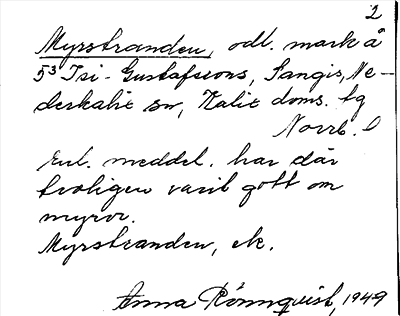 2
Myrstranden, odl. mark å
5³ Isi-Gustafssons, Sangis, Ne-
derkalix sn, Kalix doms. tg
Norrb. l
Enl. meddel. har där
troligen varit gott om
myror.
Myrstranden, ek.
Anna Rönnquist, 1949